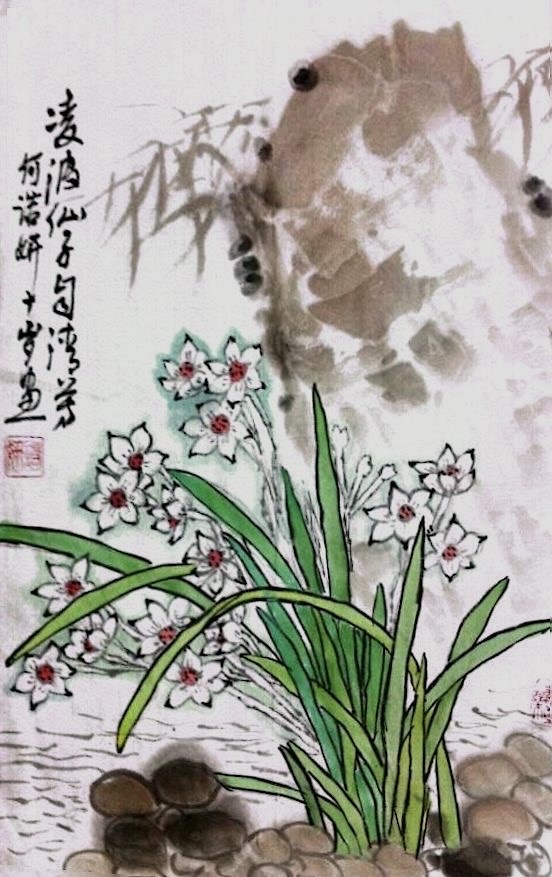 凌波仙子自清芳
何浩妍十岁画